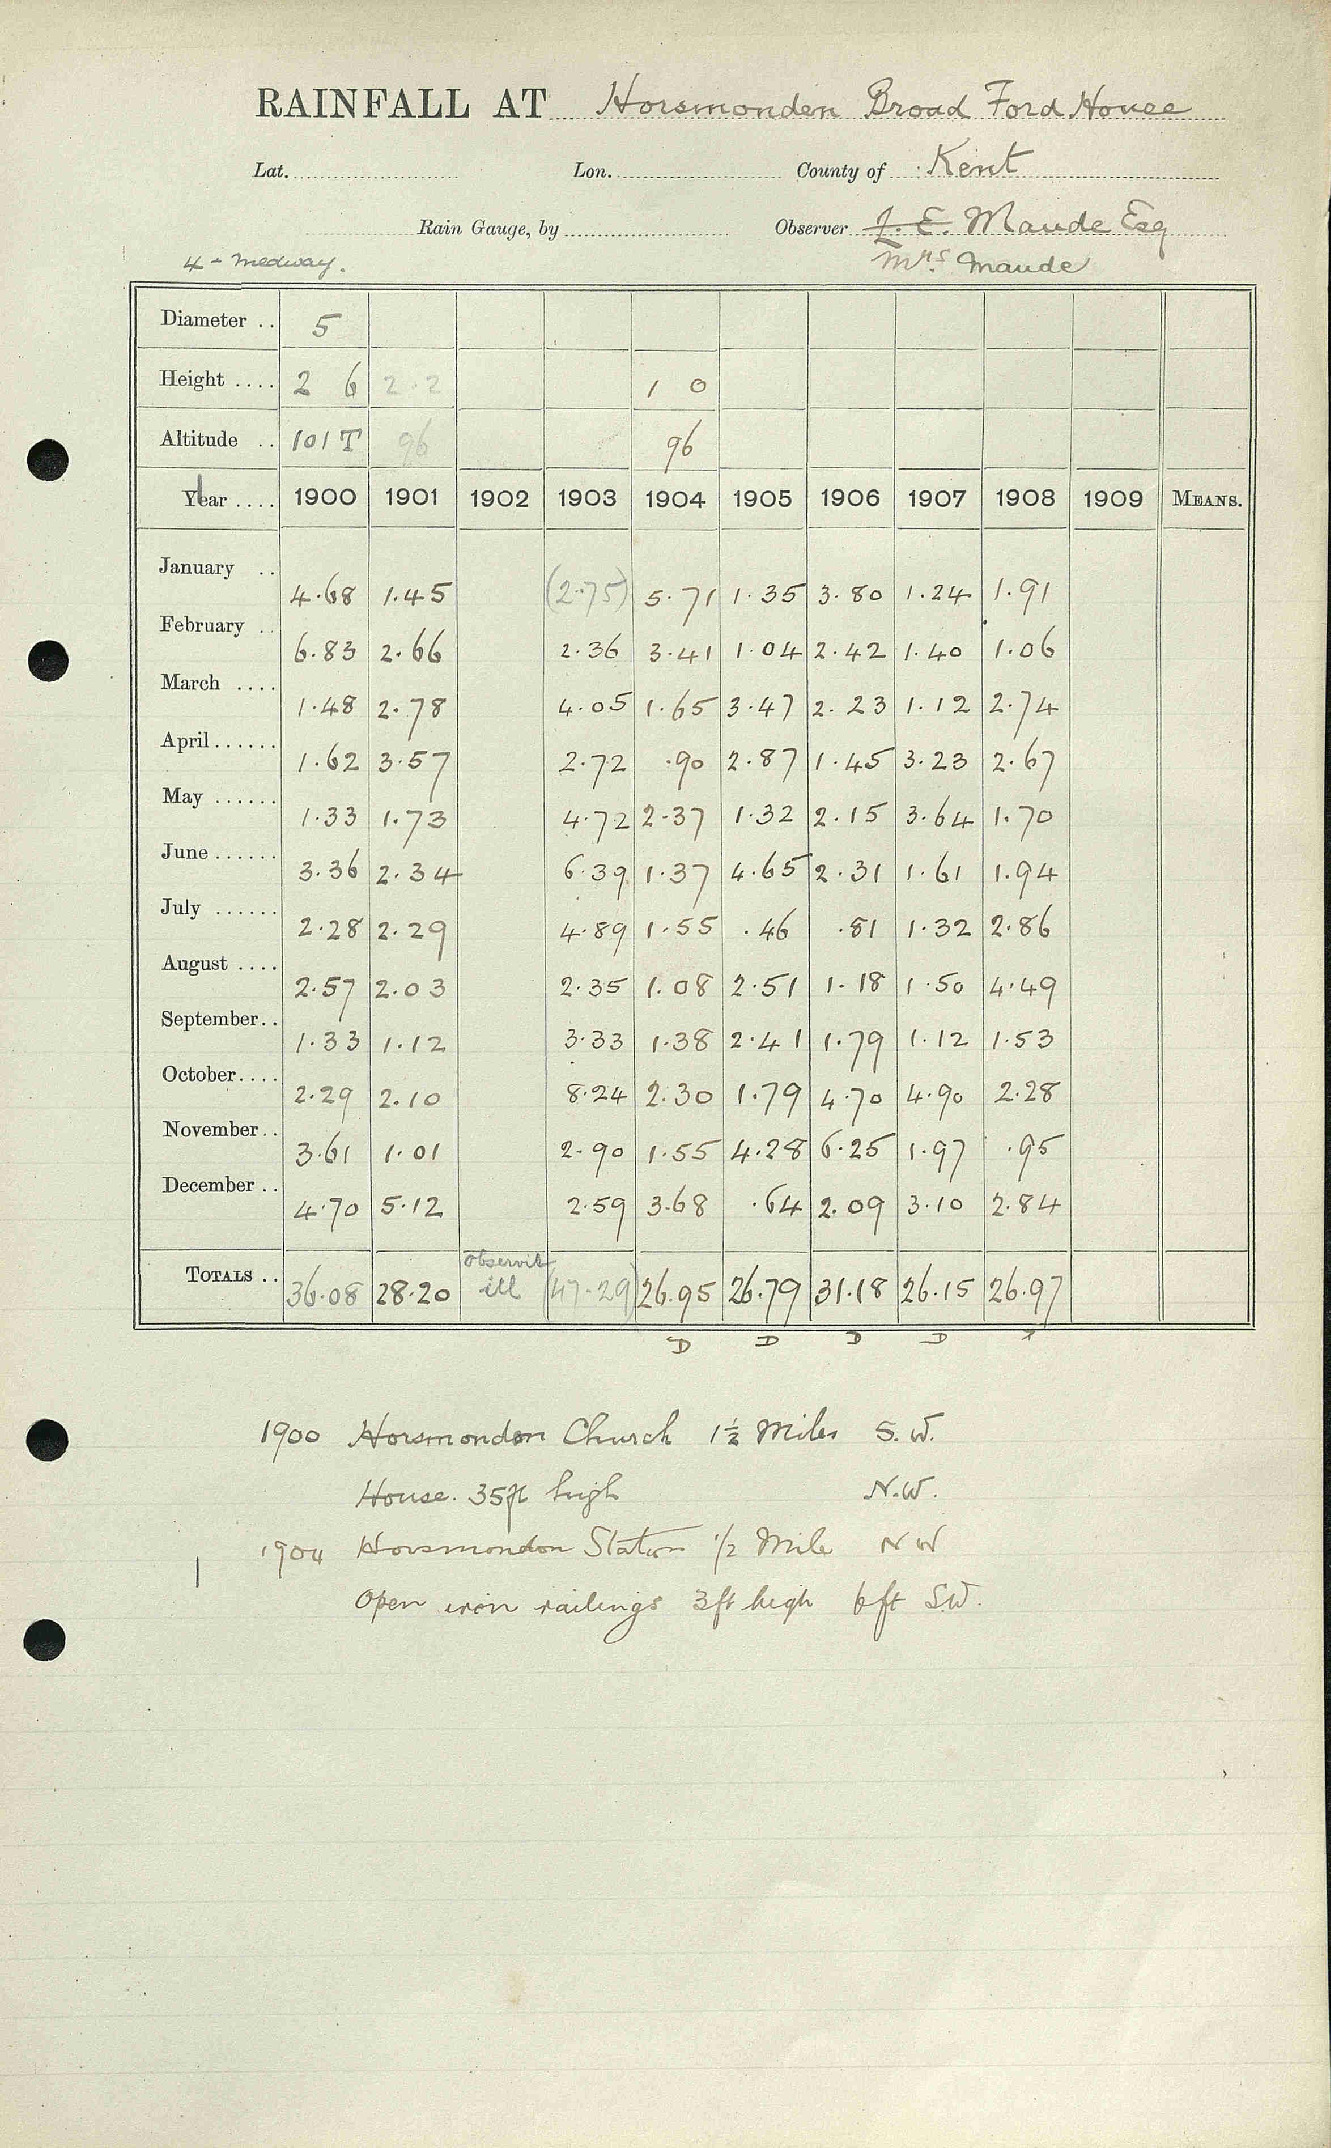 RAINFALL AT Horsmonden Broad Ford House
Lat. Lon. County of Kent
Rain Gauge, by Observer J. E. Maude Esq
4 - Medway. Mrs. Maude
Diameter .. 5
Height .... 2 6 2.2 1 0
Altitude .. 101 T 96 96
Year .... 1900 1901 1902 1903 1904 1905 1906 1907 1908 1909 MEANS.
January .. 4.68 1.45 (2.75) 5.71 1.35 3.80 1.24 1.91
February .. 6.83 2.66 2.36 3.41 1.04 2.42 1.40 1.06
March .... 1.48 2.78 4.05 1.65 3.47 2.23 1.12 2.74
April ...... 1.62 3.57 2.72 .90 2.87 1.45 3.23 2.67
May ...... 1.33 1.73 4.72 2.37 1.32 2.15 3.64 1.70
June ...... 3.36 2.34 6.39 1.37 4.65 2.31 1.61 1.94
July ...... 2.28 2.29 4.89 1.55 .46 .81 1.32 2.86
August .... 2.57 2.03 2.35 1.08 2.51 1.18 1.50 4.49
September.. 1.33 1.12 3.33 1.38 2.41 1.79 1.12 1.53
October.... 2.29 2.10 8.24 2.30 1.79 4.70 4.90 2.28
November.. 3.61 1.01 2.90 1.55 4.28 6.25 1.97 .95
December .. 4.70 5.12 2.59 3.68 .64 2.09 3.10 2.84
TOTALS .. 36.08 28.20 ill (47.29) 26.95 26.79 31.18 26.15 26.97
D D D D
1900 Horsmonden Church 1½ Miles S.W.
House. 35ft high N.W.
1904 Horsmondon Station 1/2 Mile NW
Open iron railings 3ft high 6ft S.W.